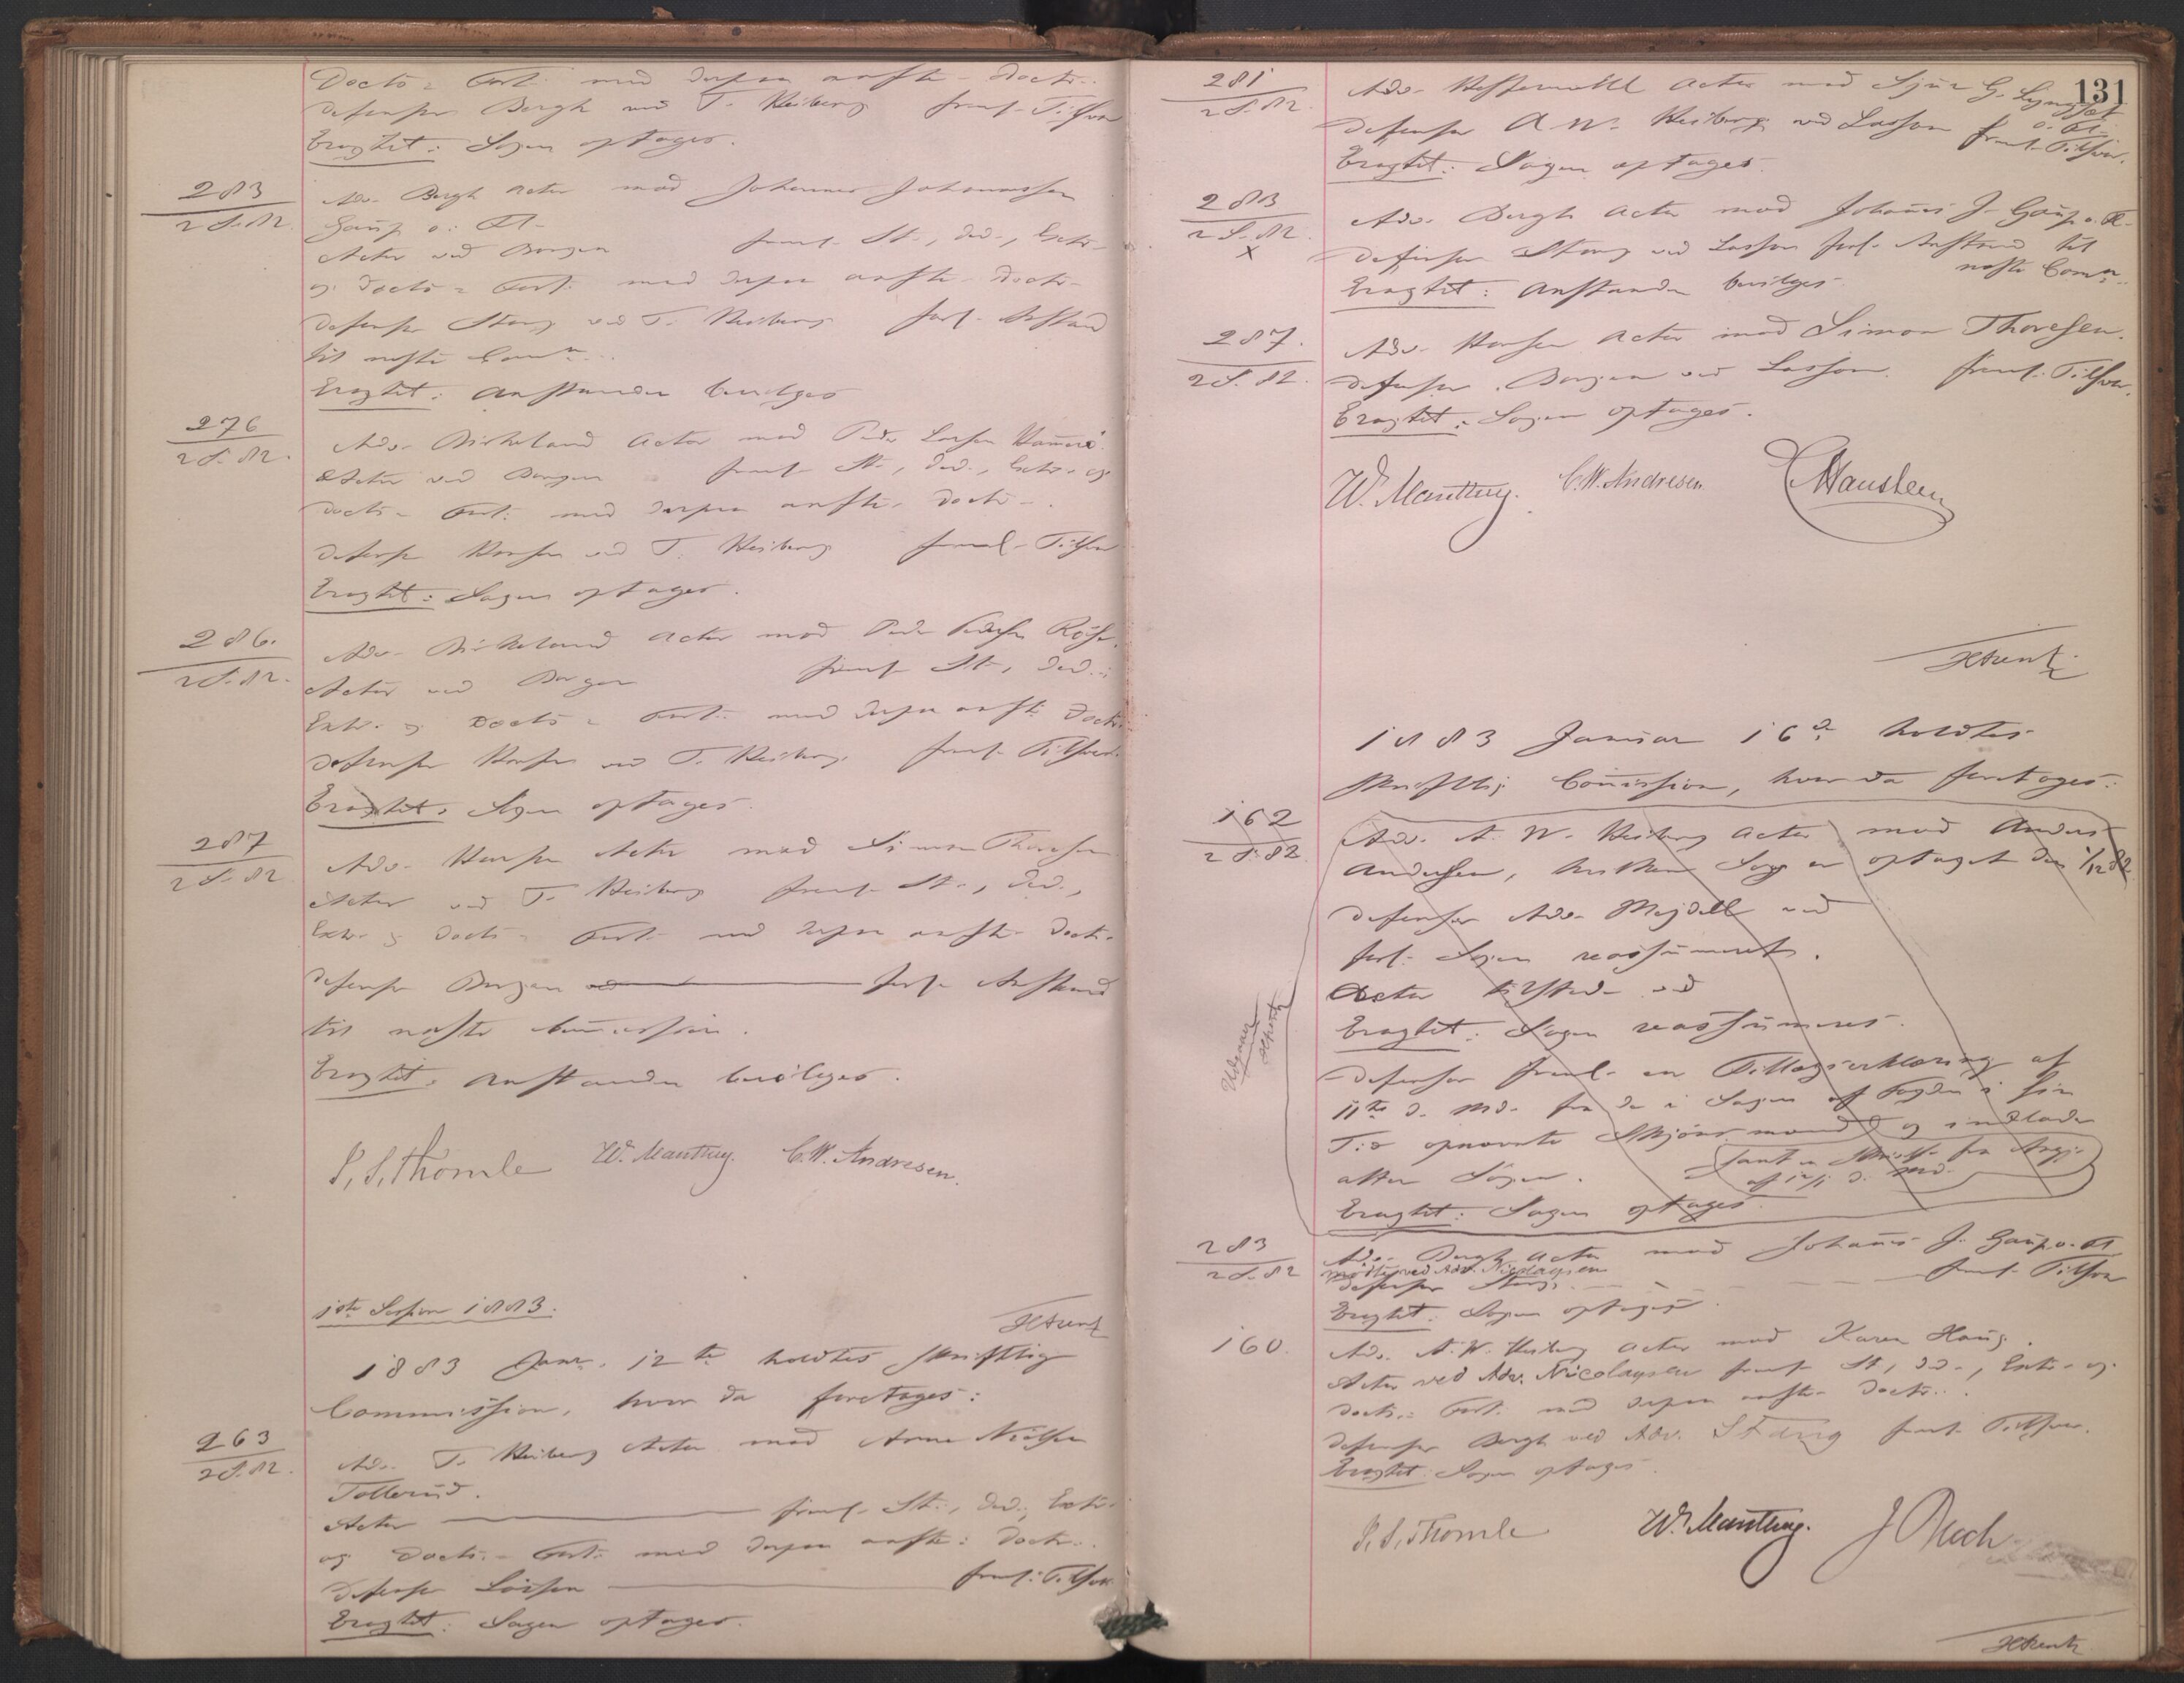 Docts = Prot. med derpaa anførte Docts.
Defensor Bergh ved T. Heiberg freml. Tilsvar
Eragtet: Sagen optages.
283
2 S. 82.
Adv. Bergh Actor mod Johannes Johannessen
Gaup o. Fl.
Actor ved Borgen freml. St., Ded., Extr.
og Docts = Prot. med derpaa anførte Docts.
Defensor Stang ved T. Heiberg forl. Anstand
til næste Comm.
Eragtet: Anstanden bevilges
276
2 S. 82.
Adv. Birkeland Actor mod Peder Larsen
Actor ved Borgen freml. St., Ded., Extr. og
Docts = Prot. med derpaa anførte Docts.
Defensor Hansen ved T. Heiberg freml. Tilsvar
Eragtet: Sagen optages.
286.
2 S. 82.
Adv. Birkeland Actor mod Peder Pedersen
Actor ved Borgen freml. St., Ded.,
Extr. og Docts = Prot. med derpaa anførte Docts.
Defensor Hansen ved T. Heiberg freml. Tilsvar.
Eragtet: Sagen optages.
287
2 S. 82
Adv. Hansen Actor mod Simon Thoresen
Actor ved T. Heiberg freml. St., Ded.,
Extr. og Docts = Prot. med derpaa anførte Docts.
Defensor Borgen ved forl. Anstand
til næste Commission.
Eragtet: Anstanden bevilges.
P. S. Thomle W. Manthey. C. W. Andresen.
1ste Session 1883.
1883 Janr. 12te holdtes skriftlig
Commission, hvor da foretoges:
263
2 S. 82.
Adv. T. Heiberg Actor mod Arne Nielsen
Tollerud.
Actor freml. St., Ded., Extr.
og Docts. = Prot. med derpaa anførte Docts.
Defensor Lasson freml. Tilsvar
Eragtet: Sagen optages.
131
281
2 S. 82.
Adv. Actor mod Sjur G.
o. Fl.
Defensor A. W. Heiberg ved Lasson freml. Tilsvar.
Eragtet: Sagen optages.
283
2 S. 82.
x
Adv. Bergh Actor mod Johans J. Gaup o. Fl.
Defensor Stang ved Lasson forl. Anstand til
næste Comm.
Eragtet: Anstanden bevilges.
287.
2 S. 82.
Adv. Hansen Actor mod Simon Thoresen.
Defensor Borgen ved Lasson freml. Tilsvar.
Eragtet: Sagen optages.
W. Manthey. C. W. Andresen.
1883 Januar 16de holdtes
skriftlig Commission, hvor da foretoges:
162
2 S. 82
Adv. A. W. Heiberg Actor mod Anders
Andersen, hvilken Sag er optaget den 1/12 82
Defensor Adv. Mejdell ved
forl. Sagen reassumeret.
Actor tilstede ved
Eragtet: Sagen reassumeres.
Defensor freml. en Tillægserklæring af
11te d. Md. fra de i Sagen af Fogden i sin
Tid opnævnte Skjønsmænd og indlader
samt en Skrivelse fra
af 12/1 d. Md.
atter Sagen.
Eragtet: Sagen optages.
Udgaar
283
2 S. 82
Adv. Bergh Actor mod Johans J. Gaup o. Fl.
mødte ved Adv. Nicolaysen
Defensor Stang freml. Tilsvar
Eragtet: Sagen optages.
160.
Adv. A. W. Heiberg Actor mod Karen Haug.
Actor ved Adv. Nicolaysen freml. St., Ded., Extr. og
Docts. = Prot. med derpaa anførte Docts.
Defensor Bergh ved Adv. Stang freml. Tilsvar.
Eragtet: Sagen optages.
P. S. Thomle W. Manthey.